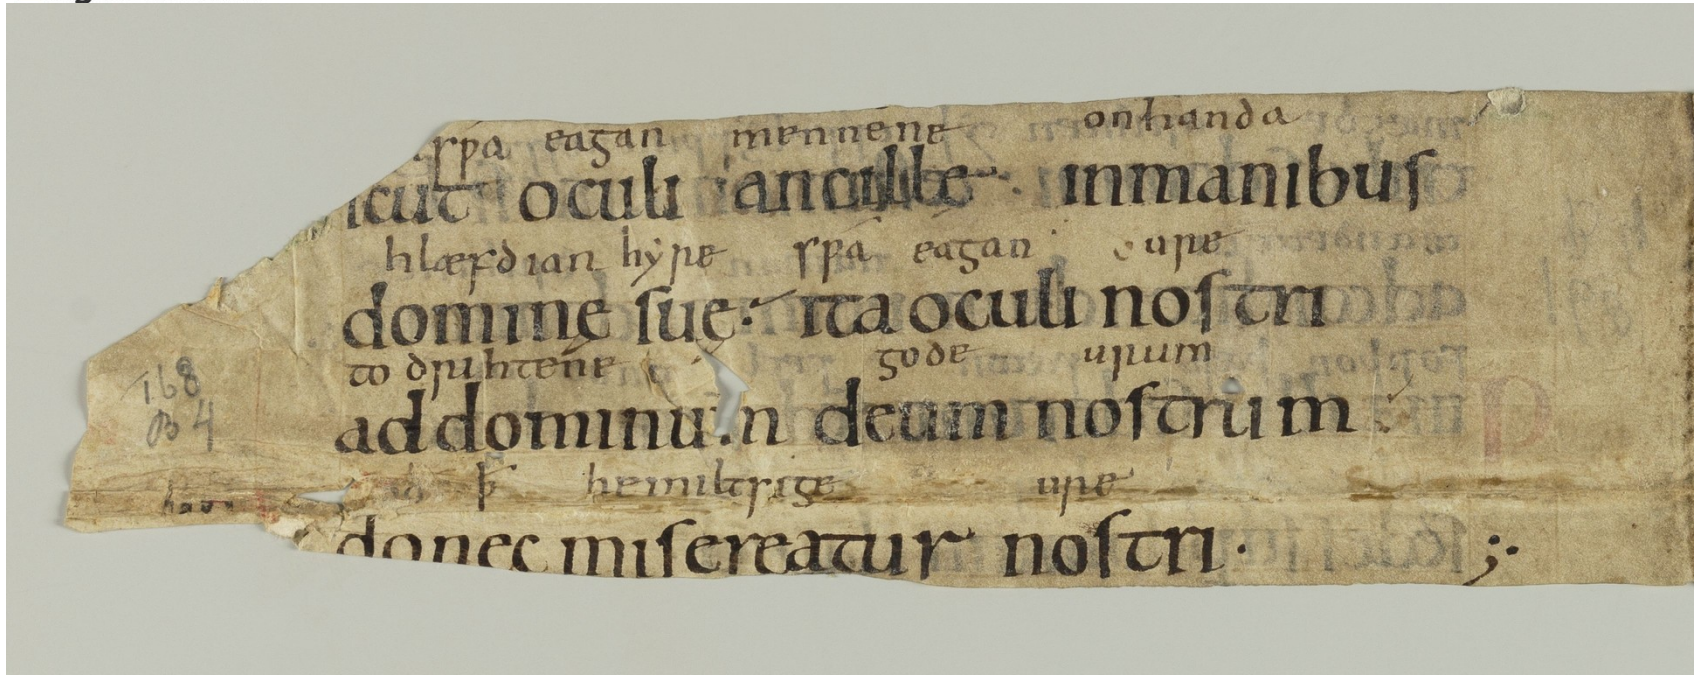 ſƿa eagan mennene onhanda
icut oculi ancillę. inmanibuſ
hlæfdian hyre ſƿa eagan ure
dominę ſuę. ita oculi noſtri
to drihtene gode urum
ad dominum deum noſtrum
þ he miltsige ure
donec miſereatur noſtri.
168
B 4